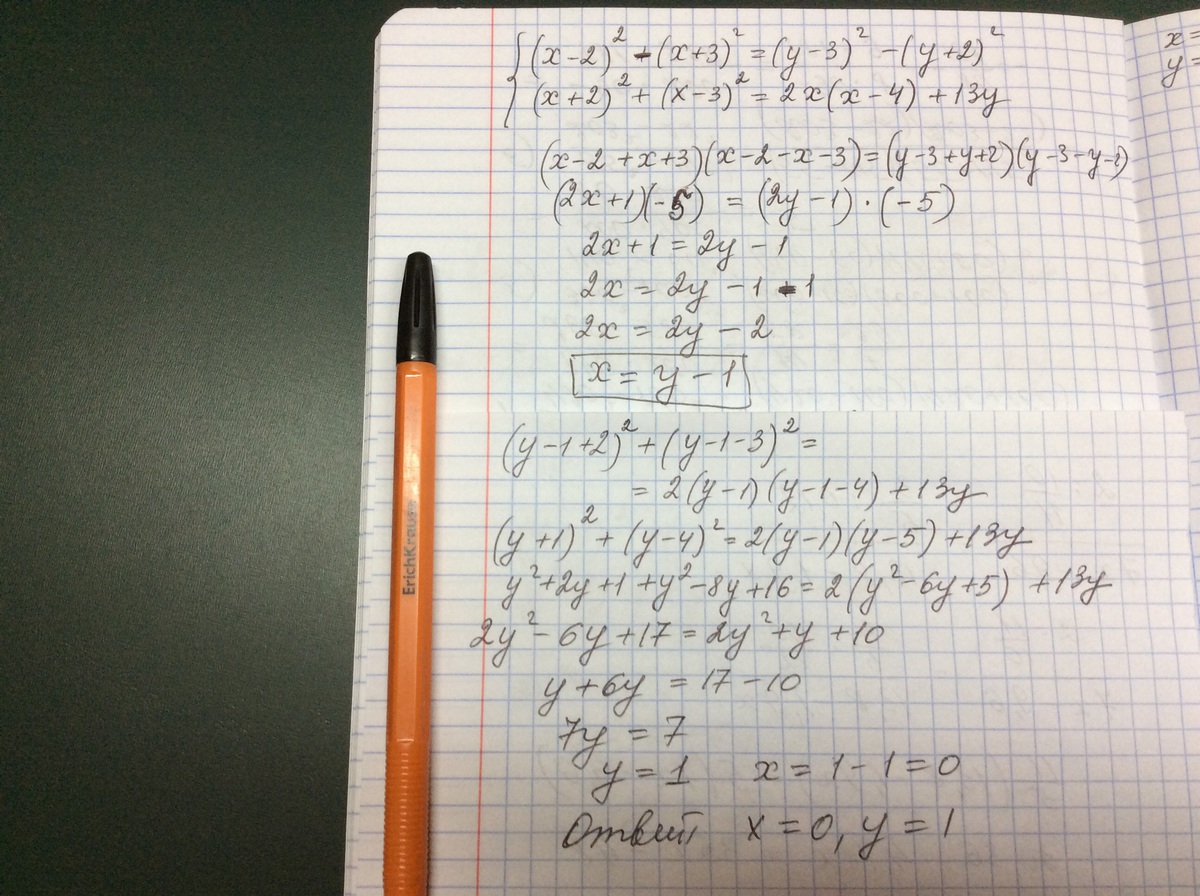 (x-2)² - (x+3)² = (y-3)² - (y+2)²
(x+2)² + (x-3)² = 2x(x-4) + 13y
(x-2+x+3)(x-2-x-3) = (y-3+y+2)(y-3-y-1)
(2x+1)(-5) = (2y-1)·(-5)
2x+1 = 2y-1
2x = 2y-1-1
2x = 2y-2
x = y-1
(y-1+2)² + (y-1-3)² =
= 2(y-1)(y-1-4) + 13y
(y+1)² + (y-4)² = 2(y-1)(y-5) + 13y
y²+2y+1+y²-8y+16 = 2(y²-6y+5) + 13y
2y²-6y+17 = 2y²+y+10
y+6y = 17-10
7y = 7
y = 1 x = 1-1 = 0
Ответ x = 0, y = 1
x =
y =
ErichKrause